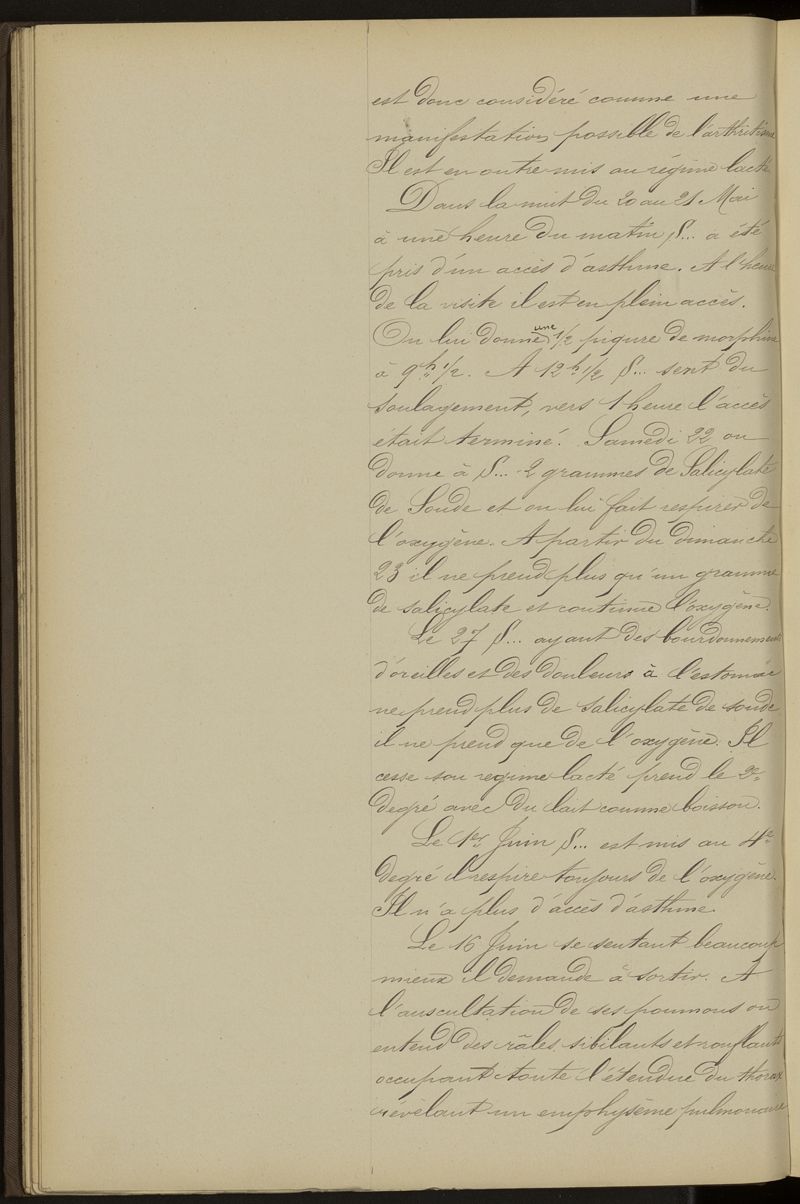 est donc considéré comme une
manifestation possible de l'arthritisme
Il est en outre mis au régime lacté
Dans la nuit du 20 au 21 Mai
à une heure du matin S... a été
pris d'un accès d'asthme. A l'heure
de la visite il est en plein accès.
On lui donne une 1/2 piqure de morphine
à 9h 1/2. A 12h 1/2 S... sent du
soulagement, vers 1 heure l'accès
était terminé. Samedi 22 on
donne à S... 2 grammes de Salicylate
de Soude et on lui fait respirer de
l'oxygène. A partir du dimanche
23 il ne prend plus qu'un gramme
de salicylate et continue l'oxygène.
Le 27 S... ayant des bourdonnements
d'oreilles et des douleurs à l'estomac
ne prend plus de salicylate de soude
il ne prend que de l'oxygène. Il
cesse son régime lacté prend le 2e
degré avec du lait comme boisson.
Le 1er Juin S... est mis au 4e
degré il respire toujours de l'oxygène.
Il n'a plus d'accès d'asthme.
Le 16 Juin se sentant beaucoup
mieux il demande à sortir. A
l'auscultation de ses poumons on
entend des râles sibilants et ronflants
occupant toute l'étendue du thorax
révélant un emphysème pulmonaire